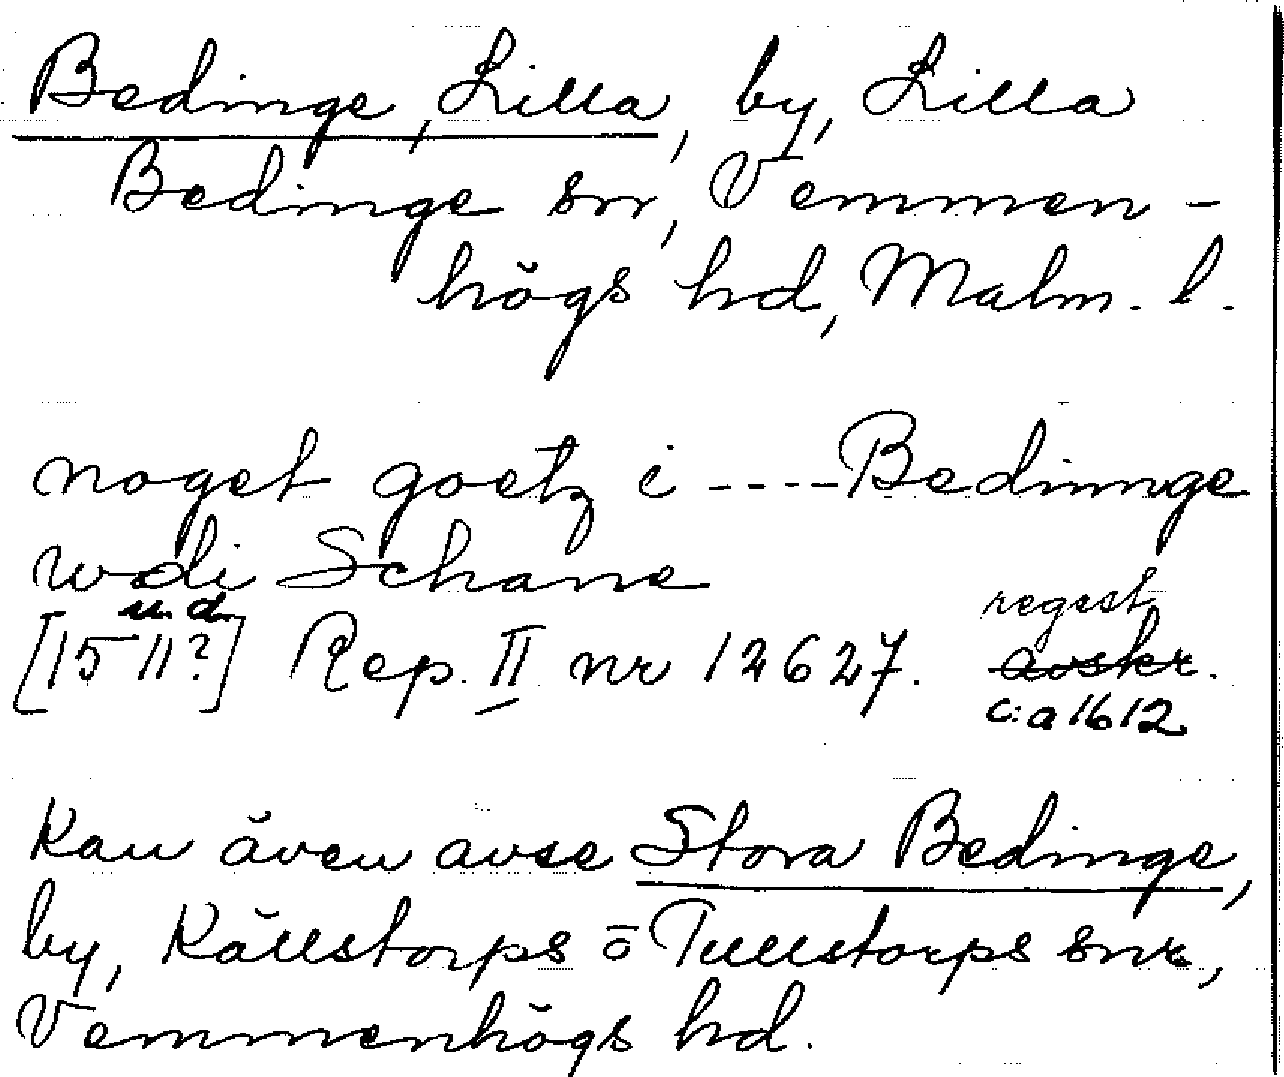 Bedinge, Lilla, by, Lilla
Bedinge sn, Vemmen-
högs hd, Malm. l.
noget goetz i ----Bedinnge
wdi Schane
u. d. regest
[1511?] Rep. II nr 12627. avskr.
c:a 1612
Kan även avse Stora Bedinge,
by, Källstorps o Tullstorps snr,
Vemmenhögs hd.